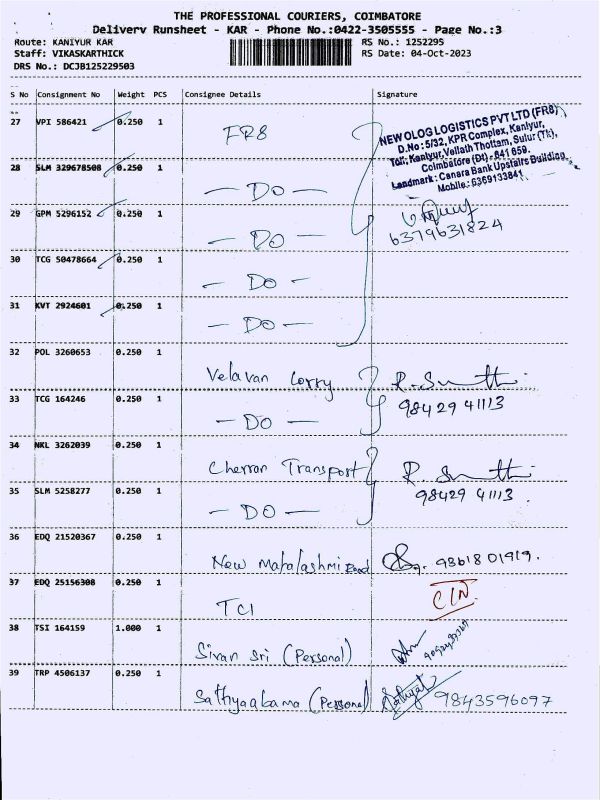 THE PROFESSIONAL COURIERS, COIMBATORE
Delivery Runsheet - KAR - Phone No.:0422-3505555 - Page No.:3
Route: KANIYUR KAR RS No.: 1252295
Staff: VIKASKARTHICK RS Date: 04-Oct-2023
DRS No.: DCJB125229503
S No Consignment No Weight PCS Consignee Details Signature
27 VPI 586421 0.250 1 FR8
NEW OLOG LOGISTICS PVT LTD (FR8)
D.No : 5/32, KPR Complex, Kaniyur,
Toll, Kaniyur, Vellath Thottam, Sulur (Tk),
Coimbatore (Dt) - 641 659.
Landmark : Canara Bank Upstairs Building
Mobile : 6369133841
28 SLM 329678508 0.250 1 - DO -
29 GPM 5296152 0.250 1 - DO - 6379631824
30 TCG 50478664 0.250 1 - DO -
31 KVT 2924601 0.250 1 - DO -
32 POL 3260653 0.250 1 Velavan Lorry
33 TCG 164246 0.250 1 - DO - 98429 41113
34 NKL 3262039 0.250 1 Cherran Transport
35 SLM 5258277 0.250 1 - DO - 98429 41113.
36 EDQ 21520367 0.250 1 New Mahalashmi 9361801919.
37 EDQ 25156308 0.250 1 TCI
38 TSI 164159 1.000 1 Sivan Sri (Personal)
39 TRP 4506137 0.250 1 Sathyaabama (Personal) 9843596097